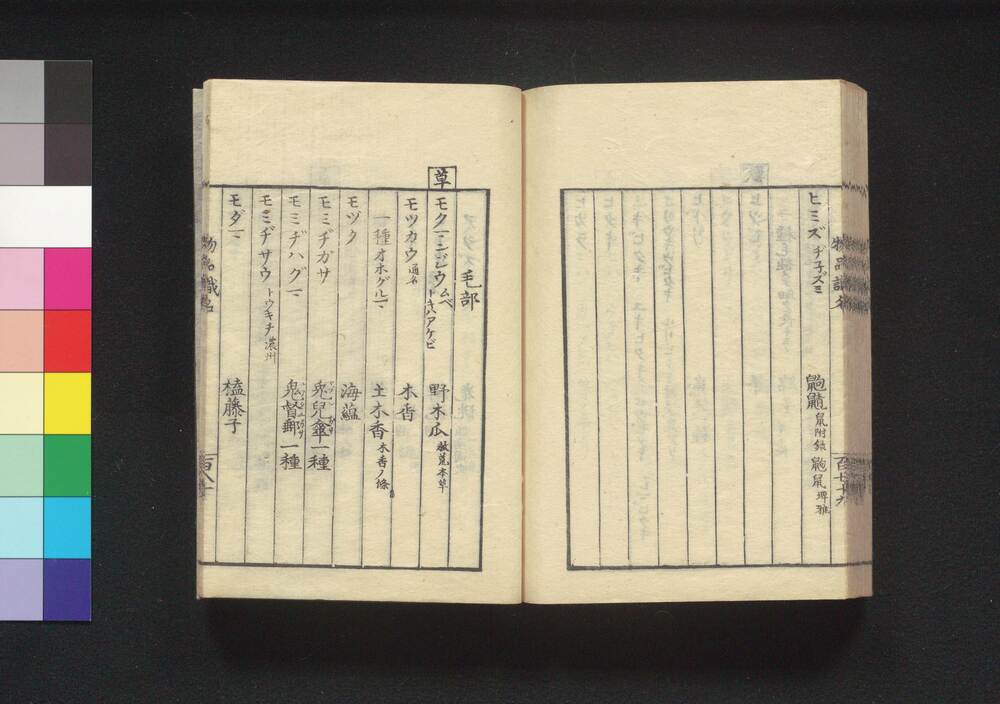 ヒミズ ヂ子ズミ 鼩鼱 鼠附録 鼩鼠 埤雅
物品識名
百七十九
毛部
草
モクマンジンウ ムベ トキハアケビ 野木瓜 救荒本草
モツカウ 通名 木香
一種オホグルマ 土木香 木香ノ條
モヅク 海蘊
モミヂガサ 兎兒傘一種
モミヂハグマ 鬼督郵一種
モミヂサウ トウキチ 濃州
モダマ 榼藤子
物品識名
百八十